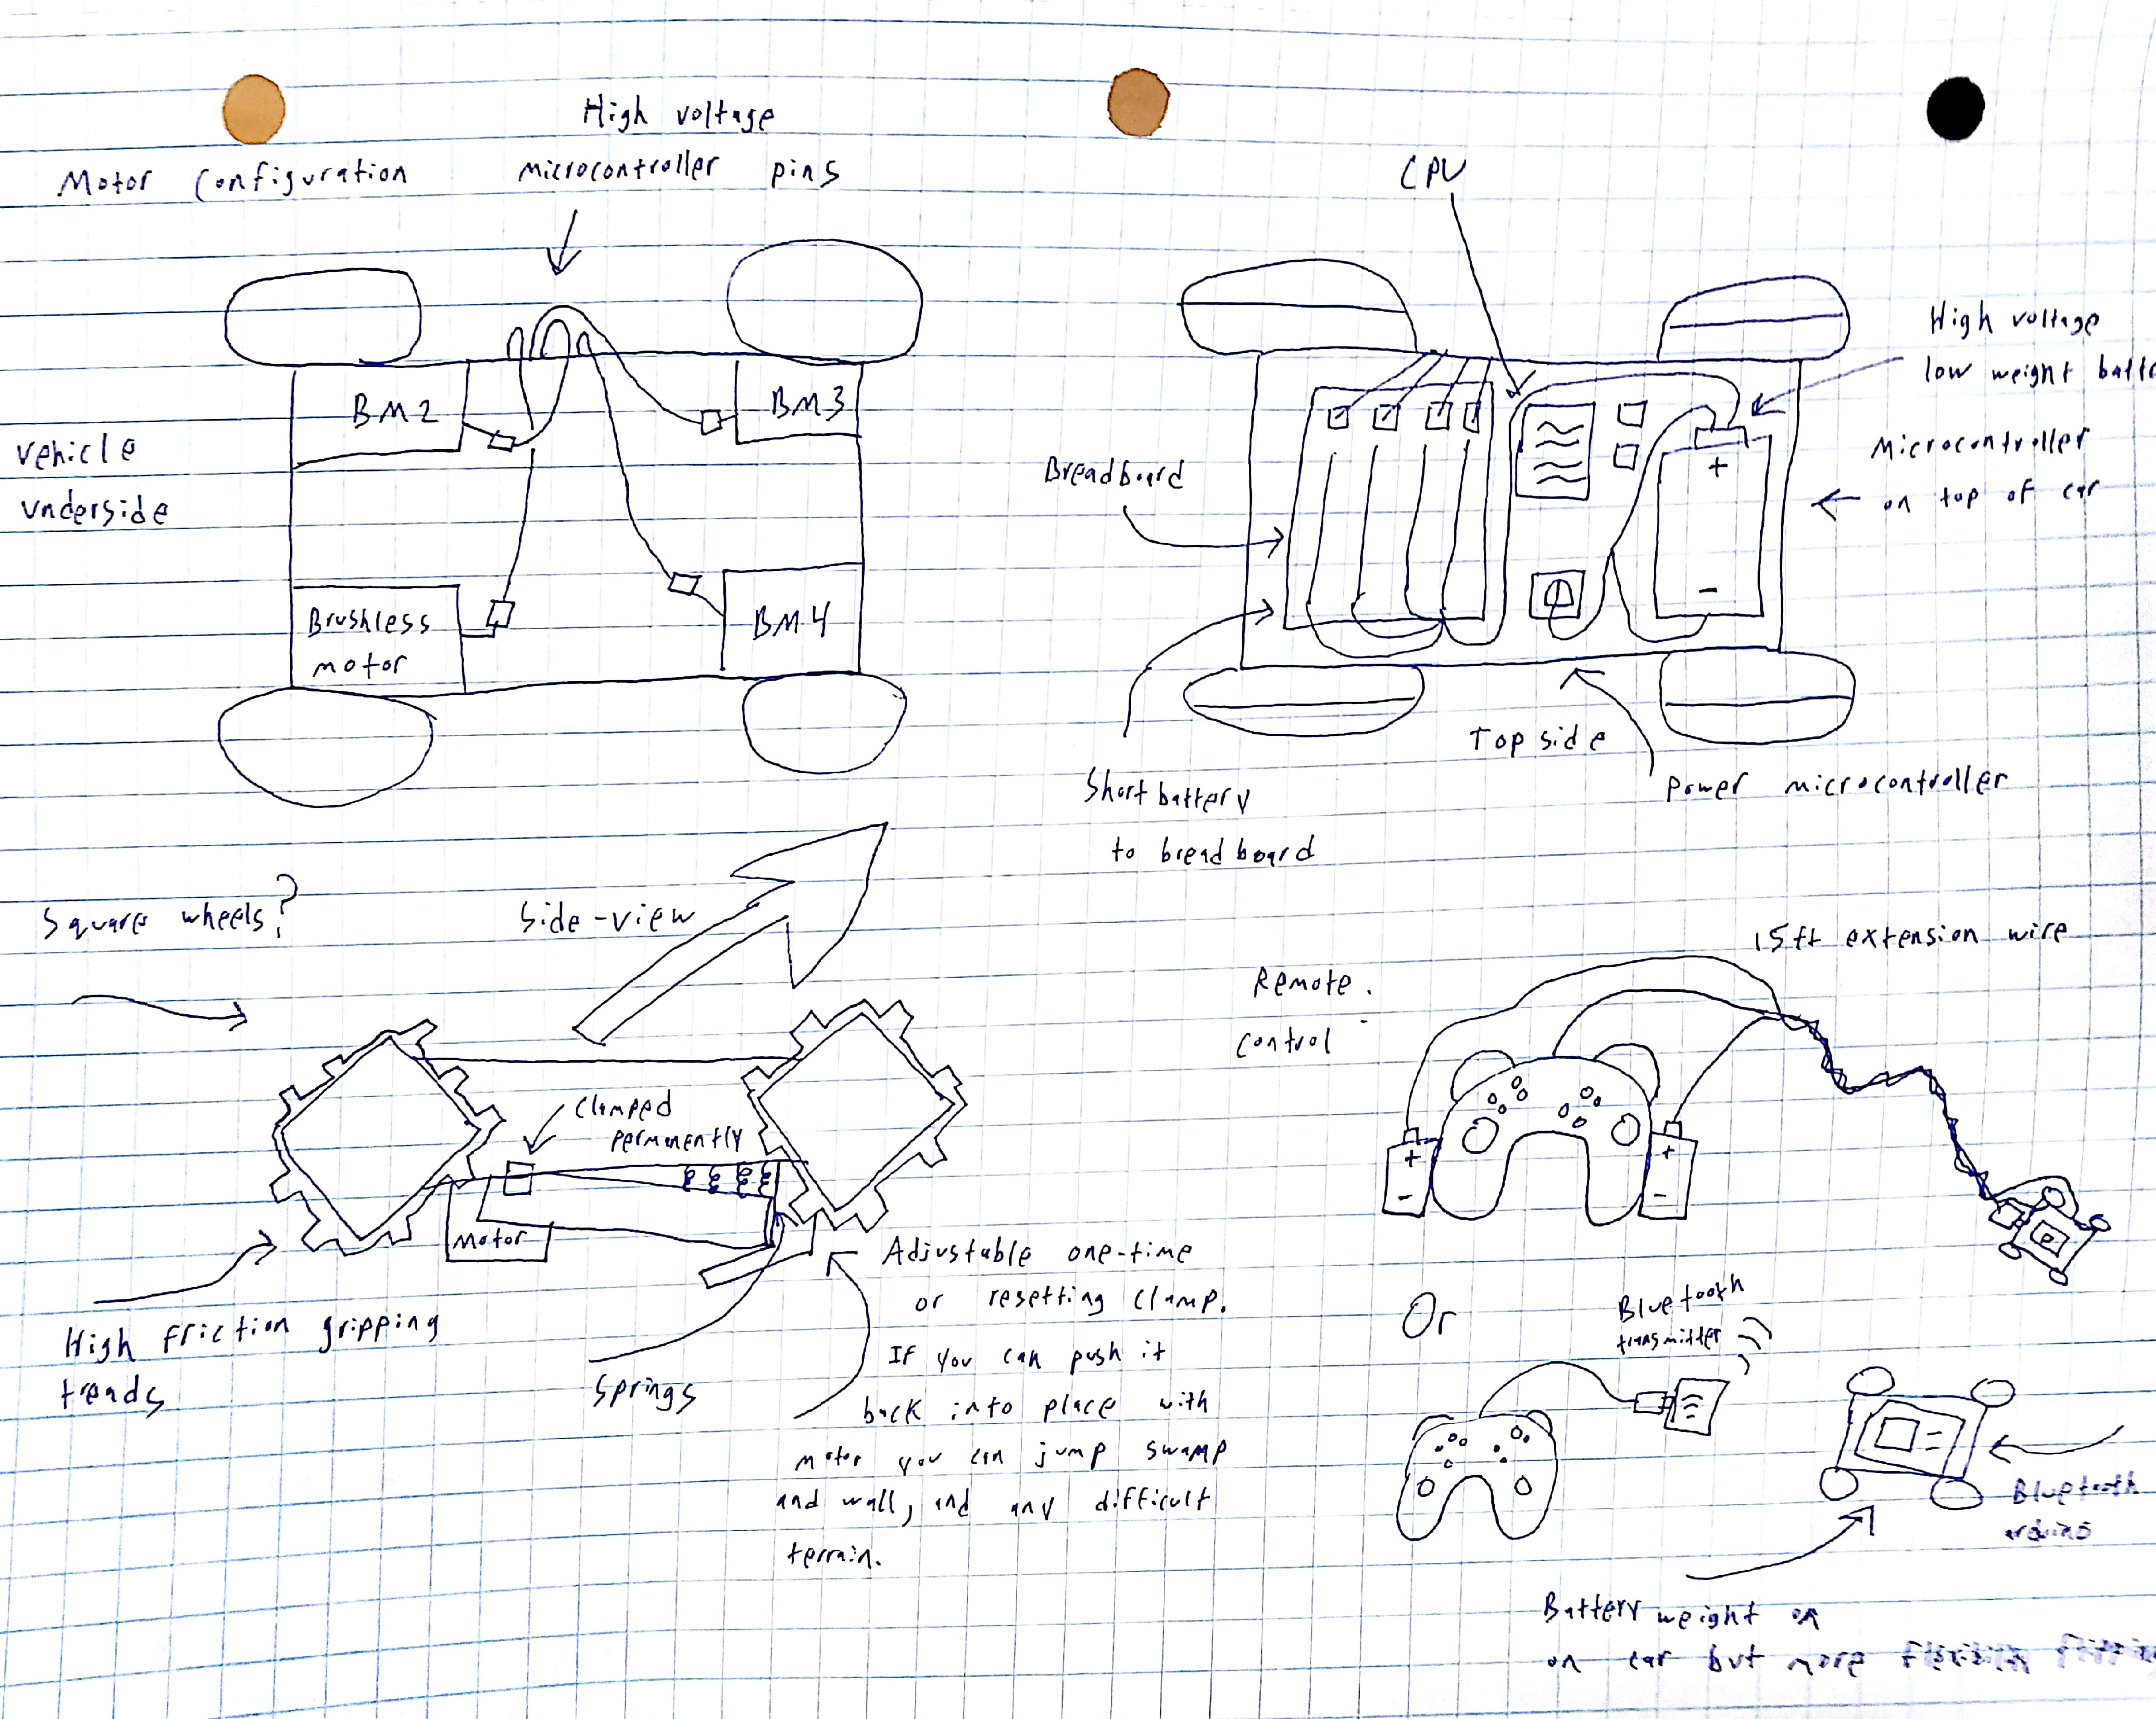 High voltage
microcontroller pins
Motor configuration
vehicle
underside
BM2
BM3
Brushless
motor
BM4
CPU
High voltage
low weight
Microcontroller
on top of car
Breadboard
+
-
Short battery
to breadboard
Top side
Power microcontroller
Square wheels?
Side-view
Clamped
permanently
Motor
High friction gripping
treads
Springs
Adjustable one-time
or resetting clamp.
If you can push it
back into place with
motor you can jump swamp
and wall, and any difficult
terrain.
Remote
control
15ft extension wire
+
-
+
-
Or
Bluetooth
transmitter
Bluetooth
arduino
Battery weight on
on car but more